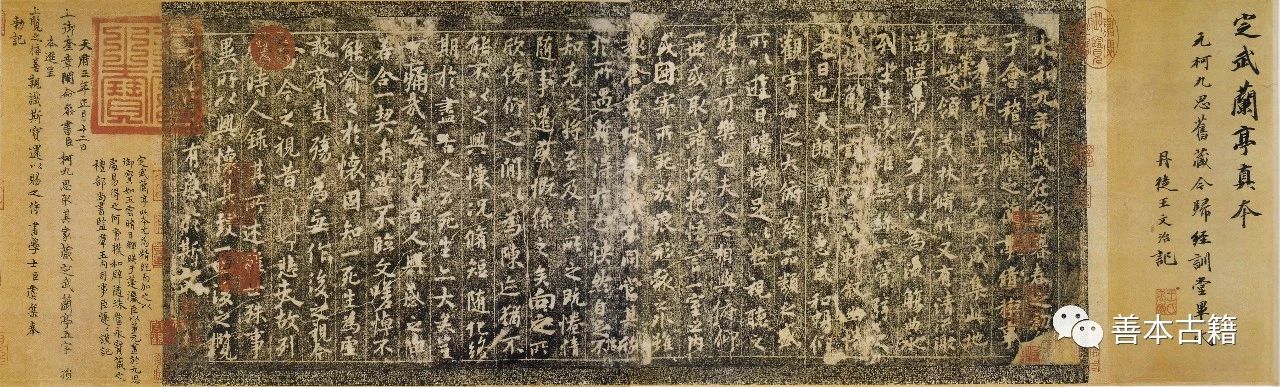 定武蘭亭真本
元柯九思舊藏今歸 經訓堂畢
丹徒王文治記
永和九年歲在癸丑暮春之初
于會稽山陰之蘭亭脩稧事
也群賢畢至少長咸集此地
有峻領茂林脩竹又有清流
湍暎帶左右引以為流觴曲水
列坐其次雖無絲竹管弦之
一觴一詠亦足以暢敘
是日也天朗氣清惠風和暢仰
觀宇宙之大俯察品類之盛
所以遊目騁懷足以極視聽之
娛信可樂也夫人之相與俯仰
一世或取諸懷抱悟言一室之內
或因寄所託放浪形骸之外雖
趣舍萬殊靜躁不同當其欣
於所遇暫得於己快然自足不
知老之將至及其所之既惓情
隨事遷感慨係之矣向之所
欣俛仰之間以為陳跡猶不
能不以之興懷況脩短隨化終
期於盡古人云死生亦大矣豈
不痛哉每攬昔人興感之由
若合一契未嘗不臨文嗟悼不
能喻之於懷固知一死生為虛
誕齊彭殤為妄作後之視今
今之視昔悲夫故列
時人錄其所述雖世殊事
異所以興懷其致一也後之攬
者有感於斯文
定武蘭亭此本尤為精絕而加之以
御寶如五雲晴日輝暎于蓬瀛臣以董元畫於九思
處易得之何啻獲和璧隨珠當永寶藏之
禮部尚書監群玉內司事臣巎巎謹記
天曆三年正月十二日
上御奎章閣命參書臣柯九思取其家藏定武蘭亭五字損
本進呈
上覽之稱善親識斯寶還以賜之侍書學士臣虞集奉
勅記
善本古籍